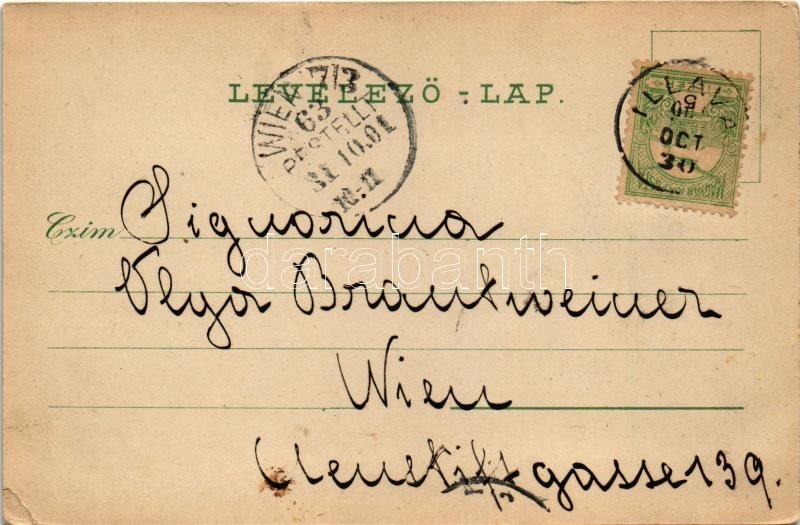 LEVELEZŐ-LAP.
WIEN 7/3
63
BESTELLT
31 10.01
ILLAVA
901
OCT
30
Czim Signorina
Olga Brantweiner
Wien
Neustiftgasse 139.
darabanth